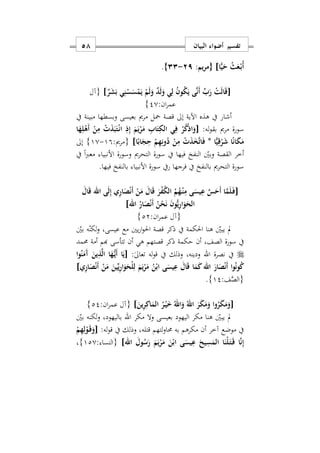 تفسير أضواء البيان ٥٨
أُبْعَثُ حَيًّا] {مريم: ٢٩-٣٣}.
[قَالَتْ رَبِّ أَنَّى يَكُونُ لِي وَلَدٌ وَلَمْ يَمْسَسْنِي بَشَرٌ] {آل
عمران:٤٧}
أشار في هذه الآية إلى قصة حمل مريم بعيسى وبسطها مبينة في
سورة مريم بقوله: [وَاذْكُرْ فِي الكِتَابِ مَرْيَمَ إِذِ انْتَبَذَتْ مِنْ أَهْلِهَا
مَكَانًا شَرْقِيًّا * فَاتَّخَذَتْ مِنْ دُونِهِمْ حِجَابًا] {مريم:١٦-١٧} إلى
آخر القصة وبيّن النفخ فيها في سورة التحريم وسورة الأنبياء معبراً في
سورة التحريم بالنفخ في فرجها وفي سورة الأنبياء بالنفخ فيها.
[فَلَمَّا أَحَسَّ عِيسَى مِنْهُمُ الكُفْرَ قَالَ مَنْ أَنْصَارِي إِلَى اللهِ قَالَ
الحَوَارِيُّونَ نَحْنُ أَنْصَارُ اللهِ]
{آل عمران:٥٢}
لم يبيّن هنا الحكمة في ذكر قصة الحواريين مع عيسى، ولكنّه بيّن
في سورة الصف، أن حكمة ذكر قصتهم هي أن تتأسى بهم أمة محمد
ﷺ في نصرة الله ودينه، وذلك في قوله تعالى: [يَا أَيُّهَا الَّذِينَ آَمَنُوا
كُونُوا أَنْصَارَ اللهِ كَمَا قَالَ عِيسَى ابْنُ مَرْيَمَ لِلْحَوَارِيِّينَ مَنْ أَنْصَارِي]
{الصَّف: ١٤}.
[وَمَكَرُوا وَمَكَرَ اللهُ وَاللهُ خَيْرُ المَاكِرِينَ] {آل عمران:٥٤}
لم يبيّن هنا مكر اليهود بعيسى ولا مكر الله باليهود، ولكنه بيّن
في موضع آخر أن مكرهم به محاولتهم قتله، وذلك في قوله: [وَقَوْلِهِمْ
إِنَّا قَتَلْنَا المَسِيحَ عِيسَى ابْنَ مَرْيَمَ رَسُولَ اللهِ] {النساء:١٥٧}،